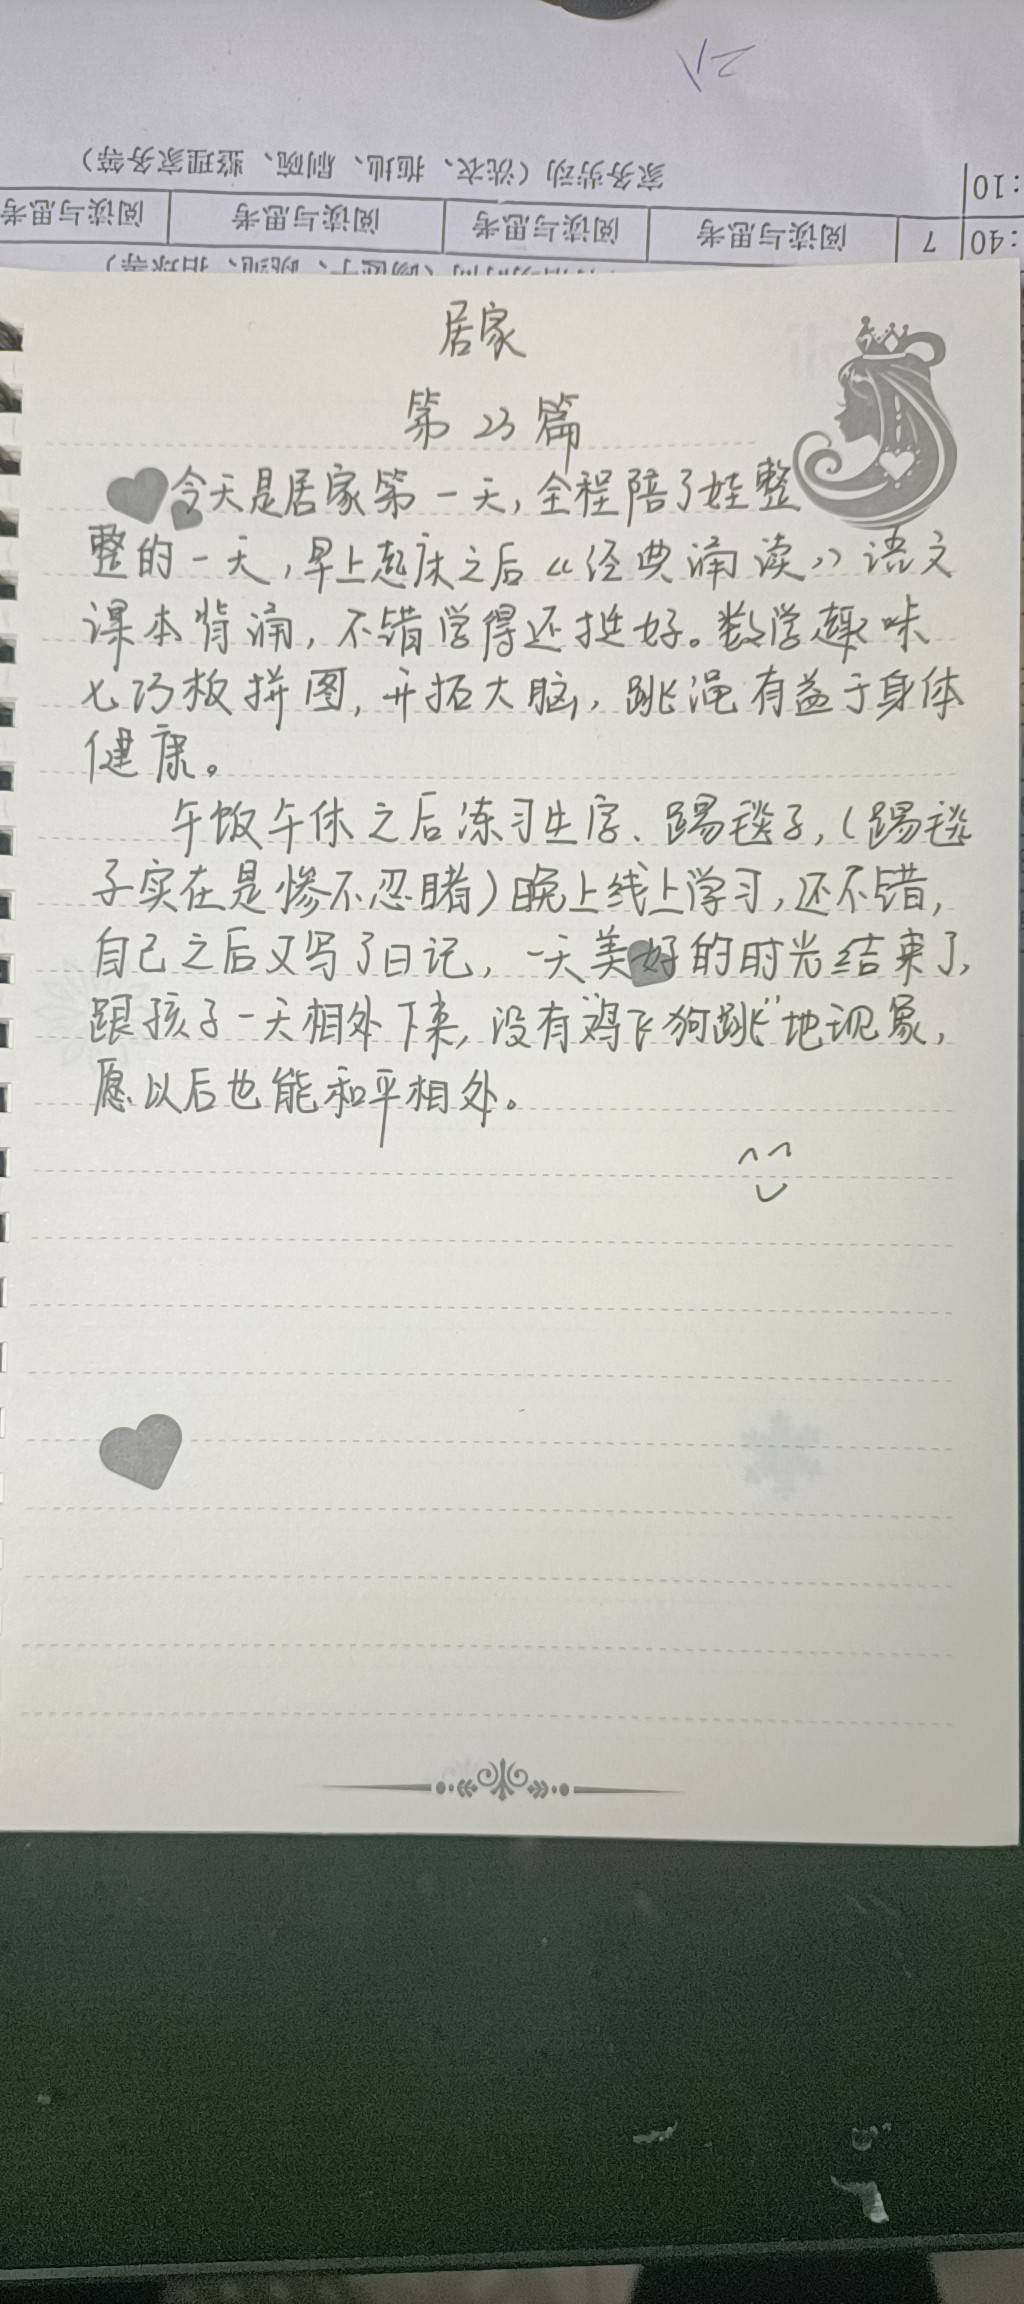 二八
家务劳动（洗衣、拖地、刷碗、整理家务等）
:10
阅读与思考 阅读与思考 阅读与思考 阅读与思考 7 :40
居家
第23篇
今天是居家第一天,全程陪了娃整
整的一天,早上起床之后《经典诵读》语文
课本背诵,不错学得还挺好。数学趣味
七巧板拼图,开拓大脑,跳绳有益于身体
健康。
午饭午休之后练习生字、踢毽子,(踢毽
子实在是惨不忍睹)晚上线上学习,还不错,
自己之后又写了日记,一天美好的时光结束了,
跟孩子一天相处下来,没有鸡飞狗跳"地现象,
愿以后也能和平相处。